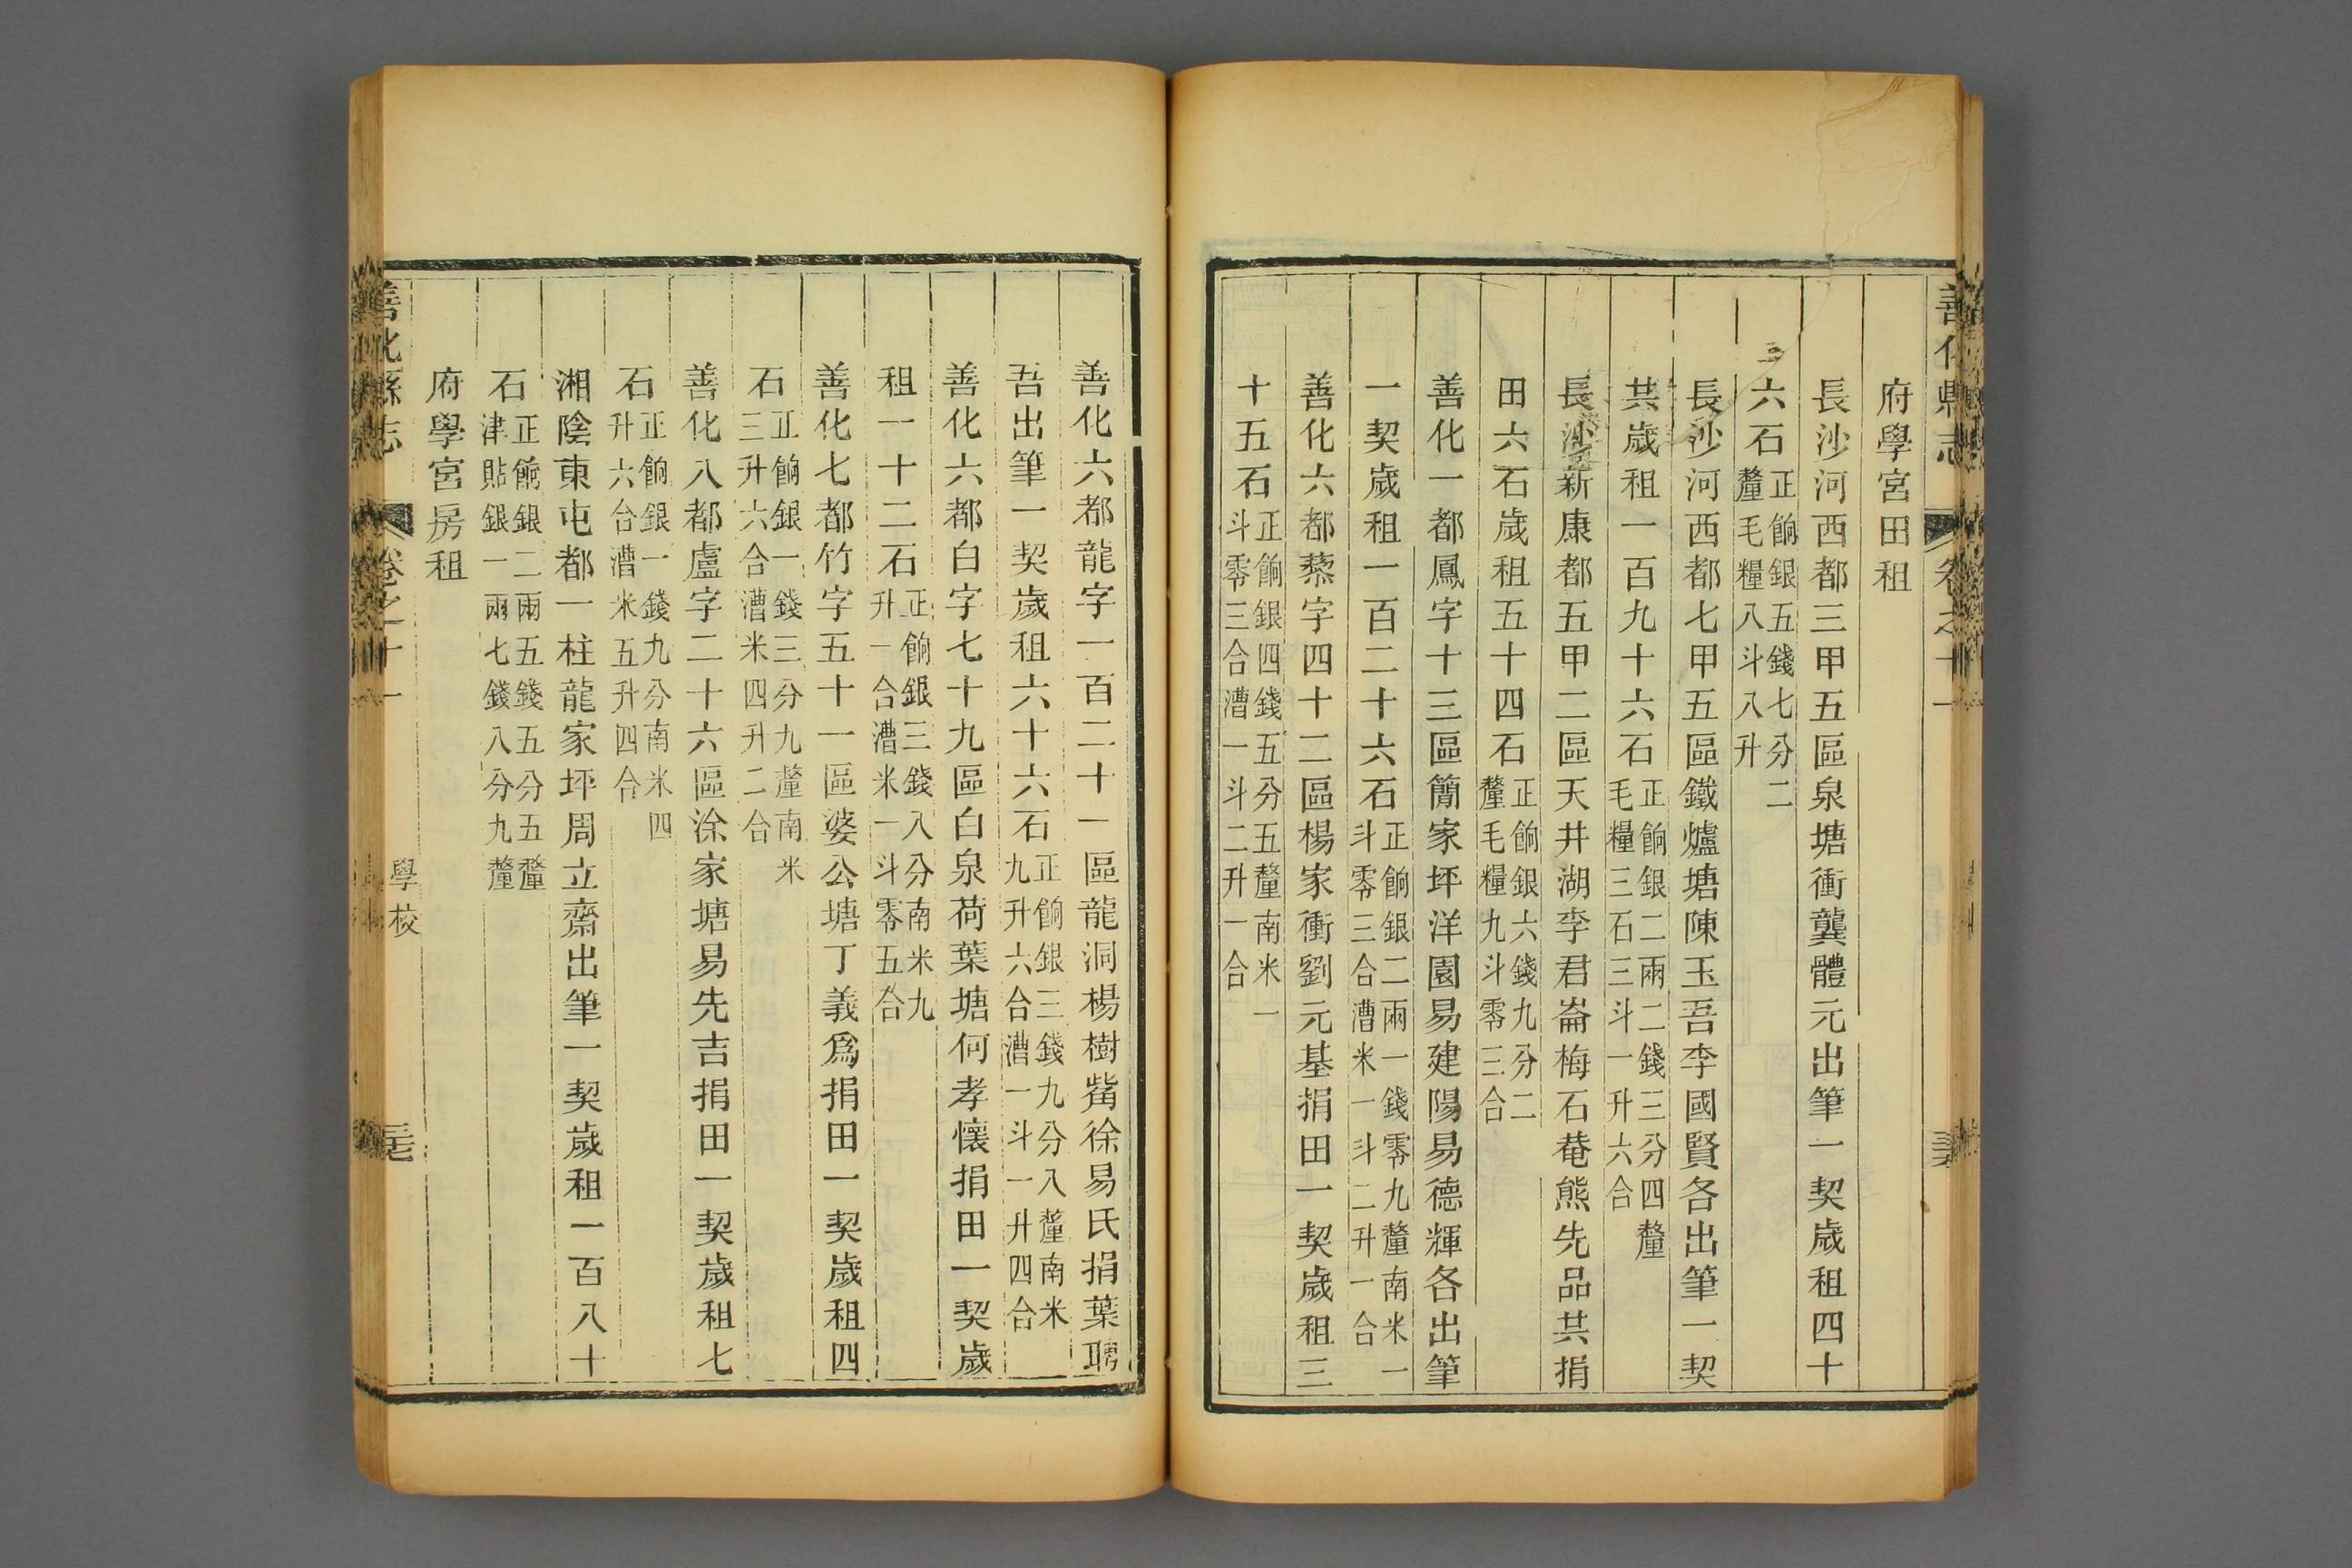 善化縣志
卷之十一
府學宮田租
長沙河西都三甲五區泉塘衝龔體元出筆一契歲租四十
六石正餉銀五錢七分二釐毛糧八斗八升
長沙河西都七甲五區鐵爐塘陳玉吾李國賢各出筆一契
共歲租一百九十六石正餉銀二兩二錢三分四釐毛糧三石三斗一升六合
長沙新康都五甲二區天井湖李君崙梅石菴熊先品共捐
田六石歲租五十四石正餉銀六錢九分二釐毛糧九斗零三合
善化一都鳳字十三區簡家坪洋園易建陽易德輝各出筆
一契歲租一百二十六石正餉銀二兩一錢零九釐南米一斗零三合漕米一斗二升一合
善化六都蔡字四十二區楊家衝劉元基捐田一契歲租三
十五石正餉銀四錢五分五釐南米一斗零三合漕一斗二升一合
善化六都龍字一百二十一區龍洞楊樹嵴徐易氏捐葉聃
吾出筆一契歲租六十六石正餉銀三錢九分八釐南米九升六合漕一斗一升四合
善化六都白字七十九區白泉荷葉塘何孝懷捐田一契歲
租一十二石正餉銀三錢八分南米九升一合漕米一斗零五合
善化七都竹字五十一區婆公塘丁義爲捐田一契歲租四
石正餉銀一錢三分九釐南米三升六合漕米四升二合
善化八都盧字二十六區涂家塘易先吉捐田一契歲租七
石正餉銀一錢九分南米四升六合漕米五升四合
湘陰東屯都一柱龍家坪周立齋出筆一契歲租一百八十
石正餉銀二兩五錢五分五釐津貼銀一兩七錢八分九釐
府學宮房租
善化縣志
卷之十一
學校
三七